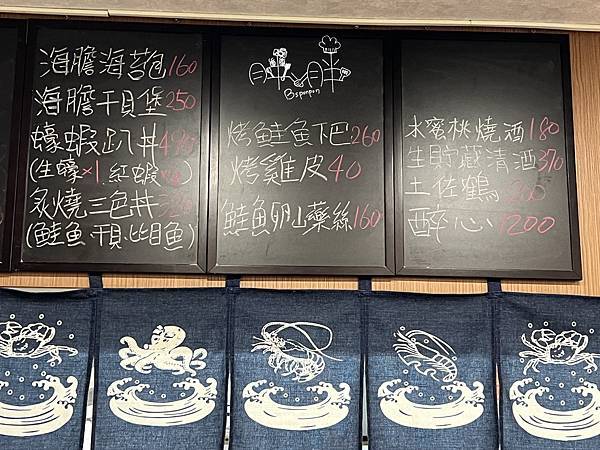 海膽海苔包160
海膽干貝堡250
蠔蝦趴丼490
(生蠔×1.紅蝦×4)
炙燒三色丼320
(鮭魚.干貝.比目魚)
Bsponpon
烤鮭魚下巴260
烤雞皮40
鮭魚卵山藥絲160
水蜜桃燒酒180
生貯蔵清酒370
土佐鶴
醉心1200